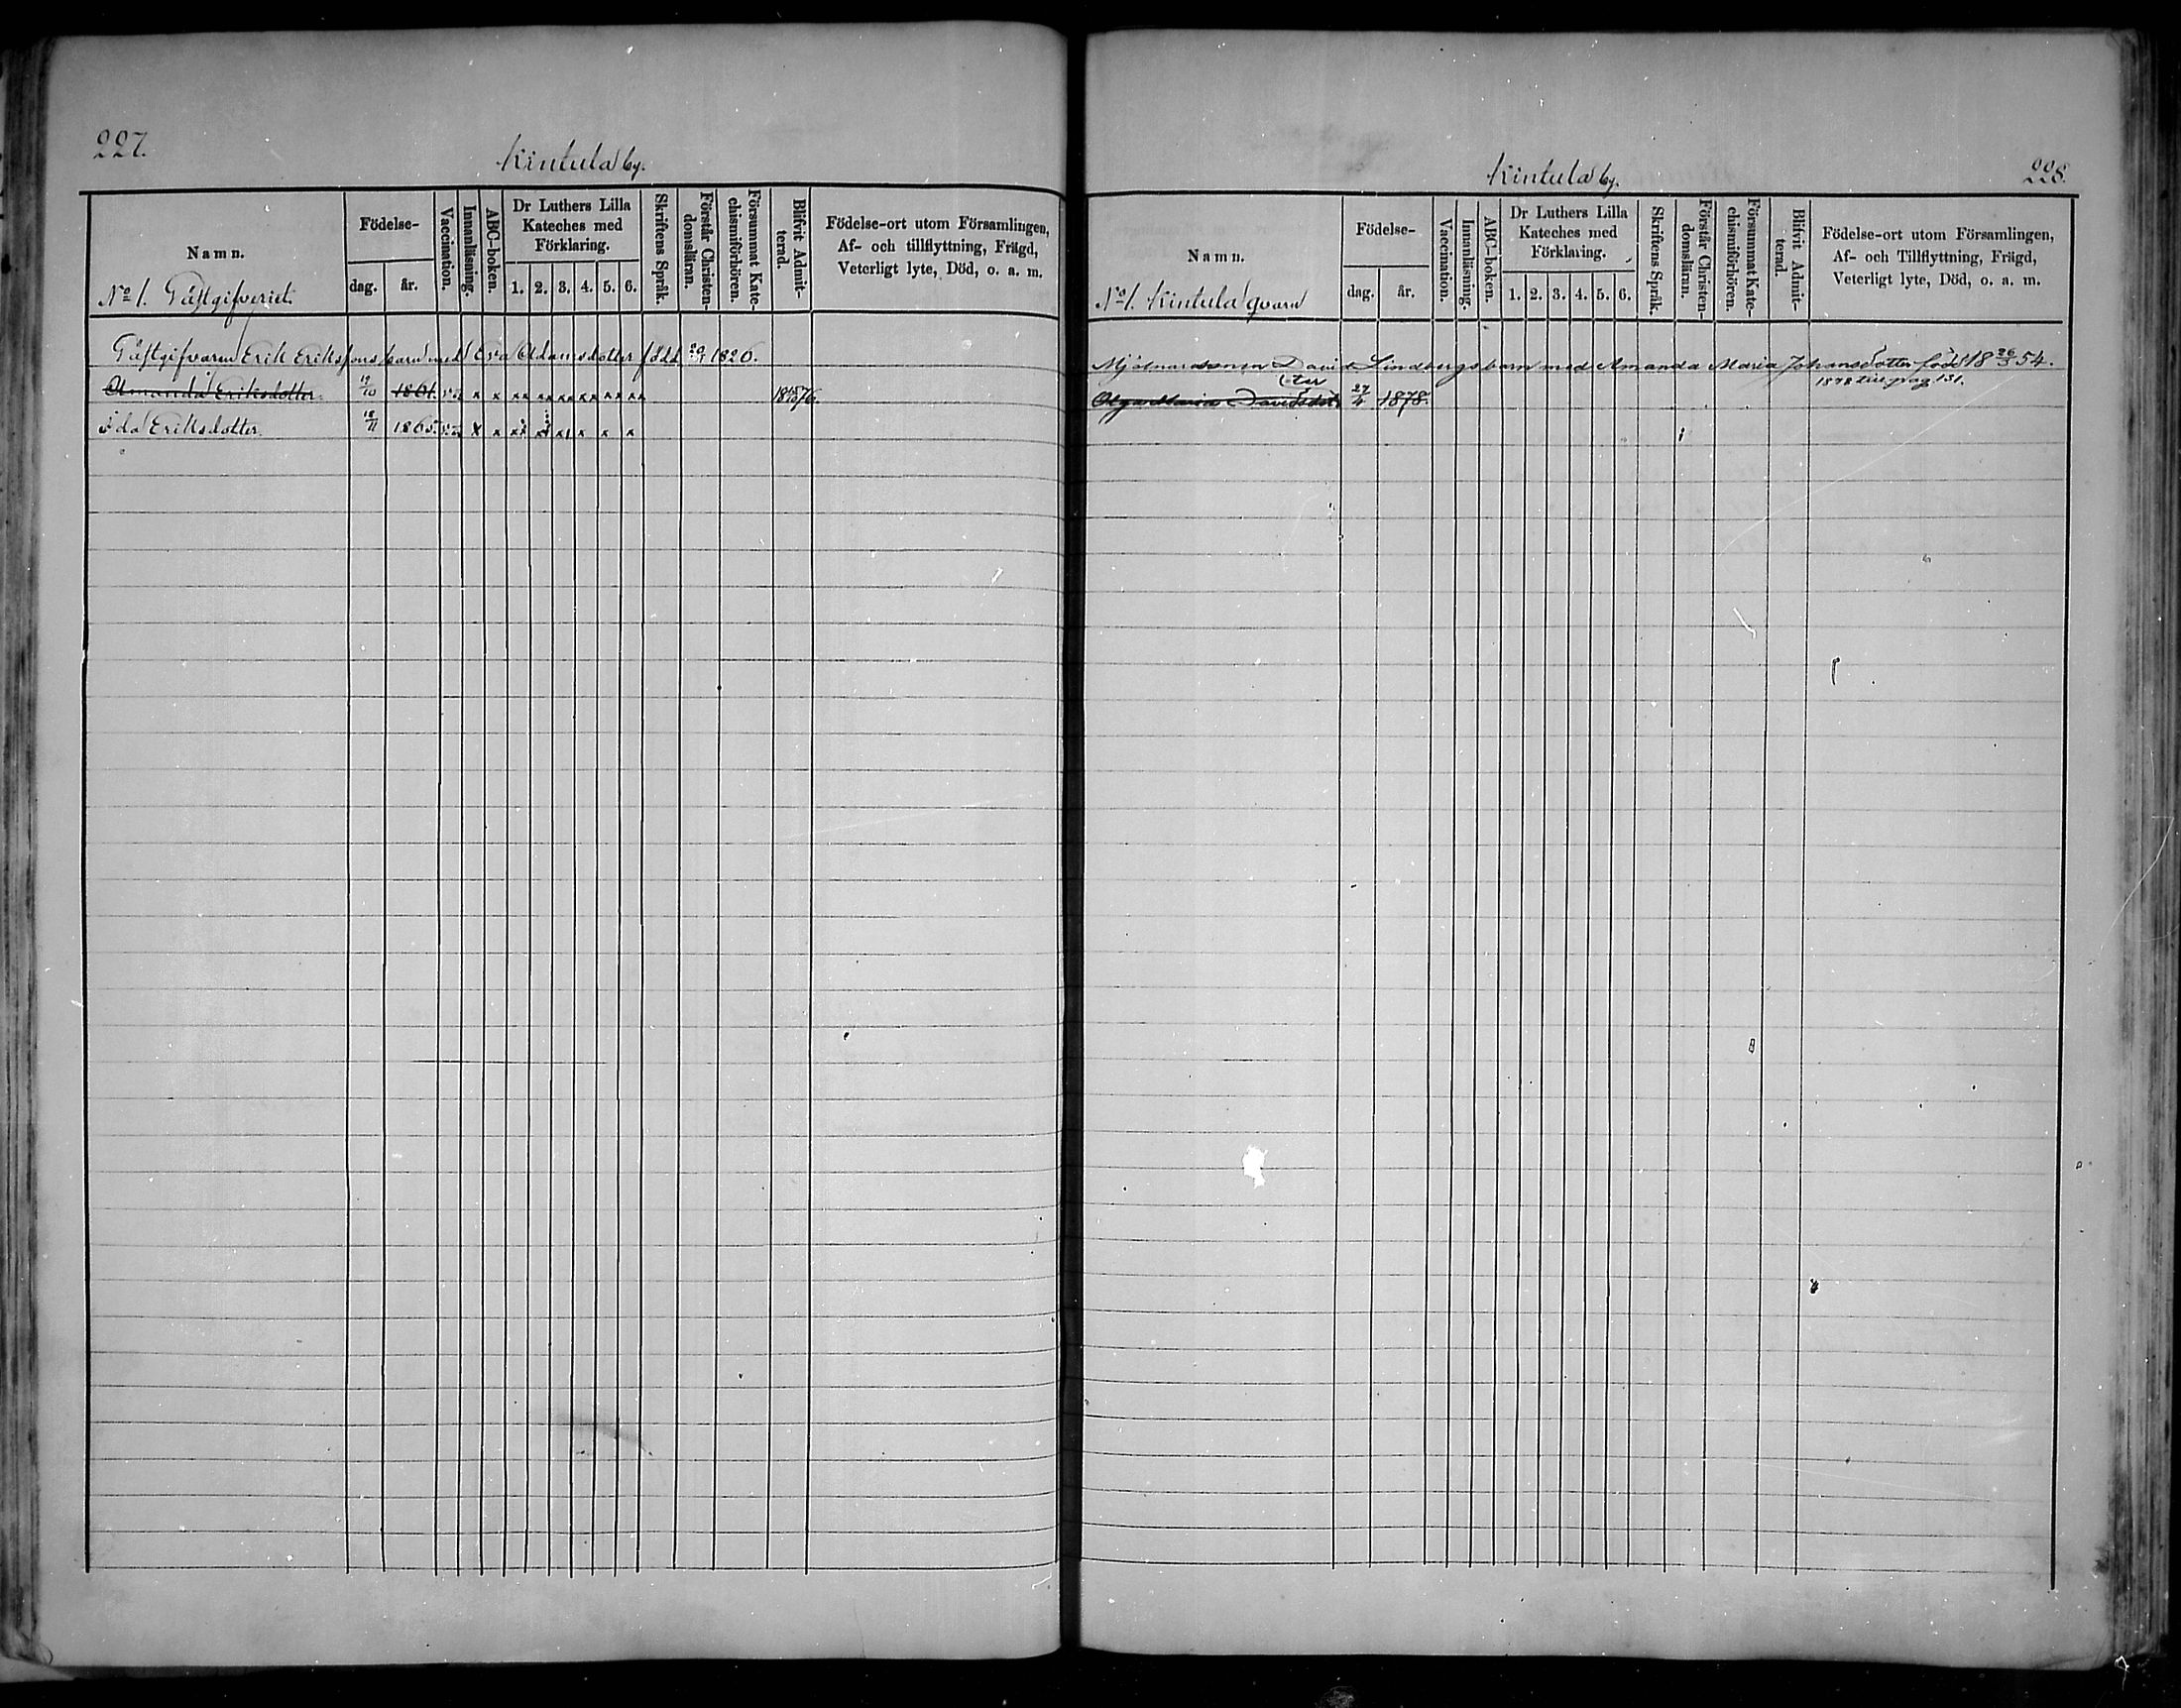 227.
Kintula by.
Namn.
Födelse-
dag.
år.
Vaccination.
Innanläsning.
ABC-boken.
Dr Luthers Lilla
Kateches med
Förklaring.
1. 2. 3. 4. 5. 6.
Skriftens Språk.
Förstår Christen-
domsläran.
Försummat Kate-
chismiförhören.
Blifvit Admit-
terad.
Födelse-ort utom Församlingen,
Af- och tillflyttning, Frägd,
Veterligt lyte, Död, o. a. m.
No 1. Gästgifveriet.
Gästgifvaren Erik Erikssons barn med Eva Adamsdotter född 1826.
Amanda Eriksdotter. 19/10 1861. x x xx xx xx xx xx xx 1876.
Ida Eriksdotter. 18/11 1865. x x x x x x x x
228.
Kintula by.
Namn.
Födelse-
dag.
år.
Vaccination.
Innanläsning.
ABC-boken.
Dr Luthers Lilla
Kateches med
Förklaring.
1. 2. 3. 4. 5. 6.
Skriftens Språk.
Förstår Christen-
domsläran.
Försummat Kate-
chismiförhören.
Blifvit Admit-
terad.
Födelse-ort utom Församlingen,
Af- och Tillflyttning, Frägd,
Veterligt lyte, Död, o. a. m.
No 1. Kintula qvarn
Mjölnaresonen David Lindbergs barn med Amanda Maria Johansdotter född 18 26/3 54.
Olga Maria Davidsdotter 1878. 1878 till pag 131.